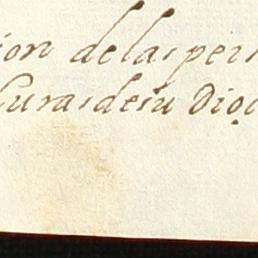 ion de las pers
Curas de su Dioc